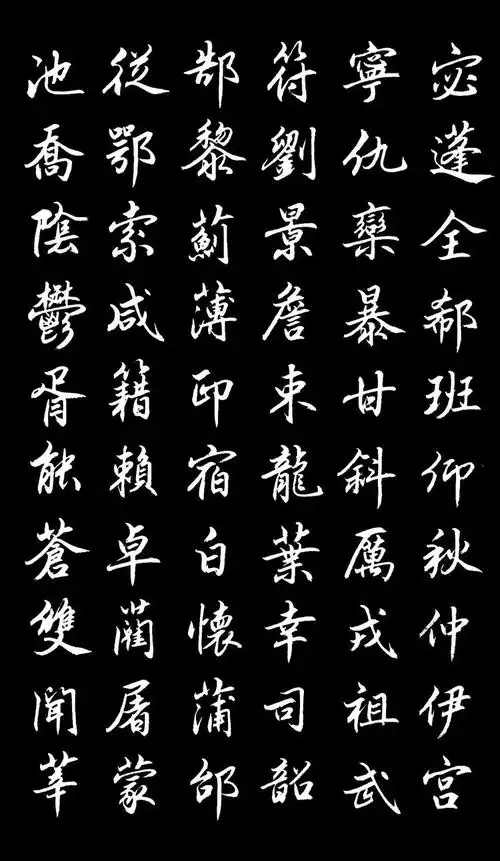 宓蓬全郗班仰秋仲伊宮
寧仇欒暴甘斜厲戎祖武
符劉景詹束龍葉幸司韶
郜黎薊薄印宿白懷蒲邰
從鄂索咸籍賴卓藺屠蒙
池喬陰鬱胥能蒼雙聞莘